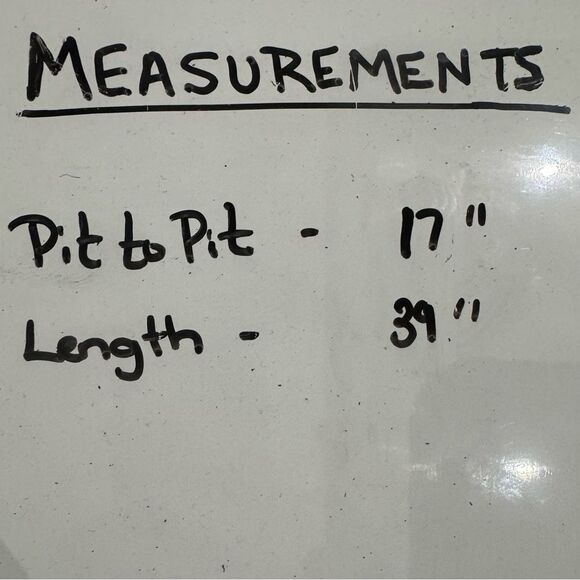 MEASUREMENTS
Pit to Pit - 17"
Length - 39"